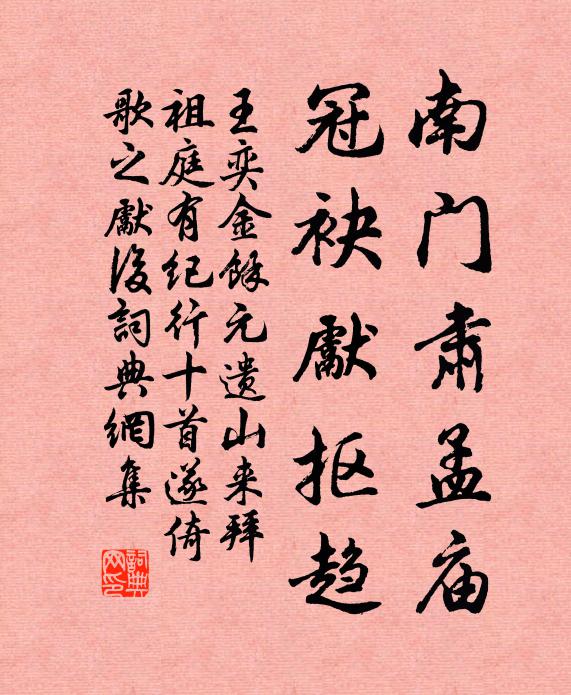 南门肃孟庙
冠袂献抠趋
王奕金馀元遗山来拜
祖庭有纪行十首遂倚
歌之献后词典网集
詞典网印